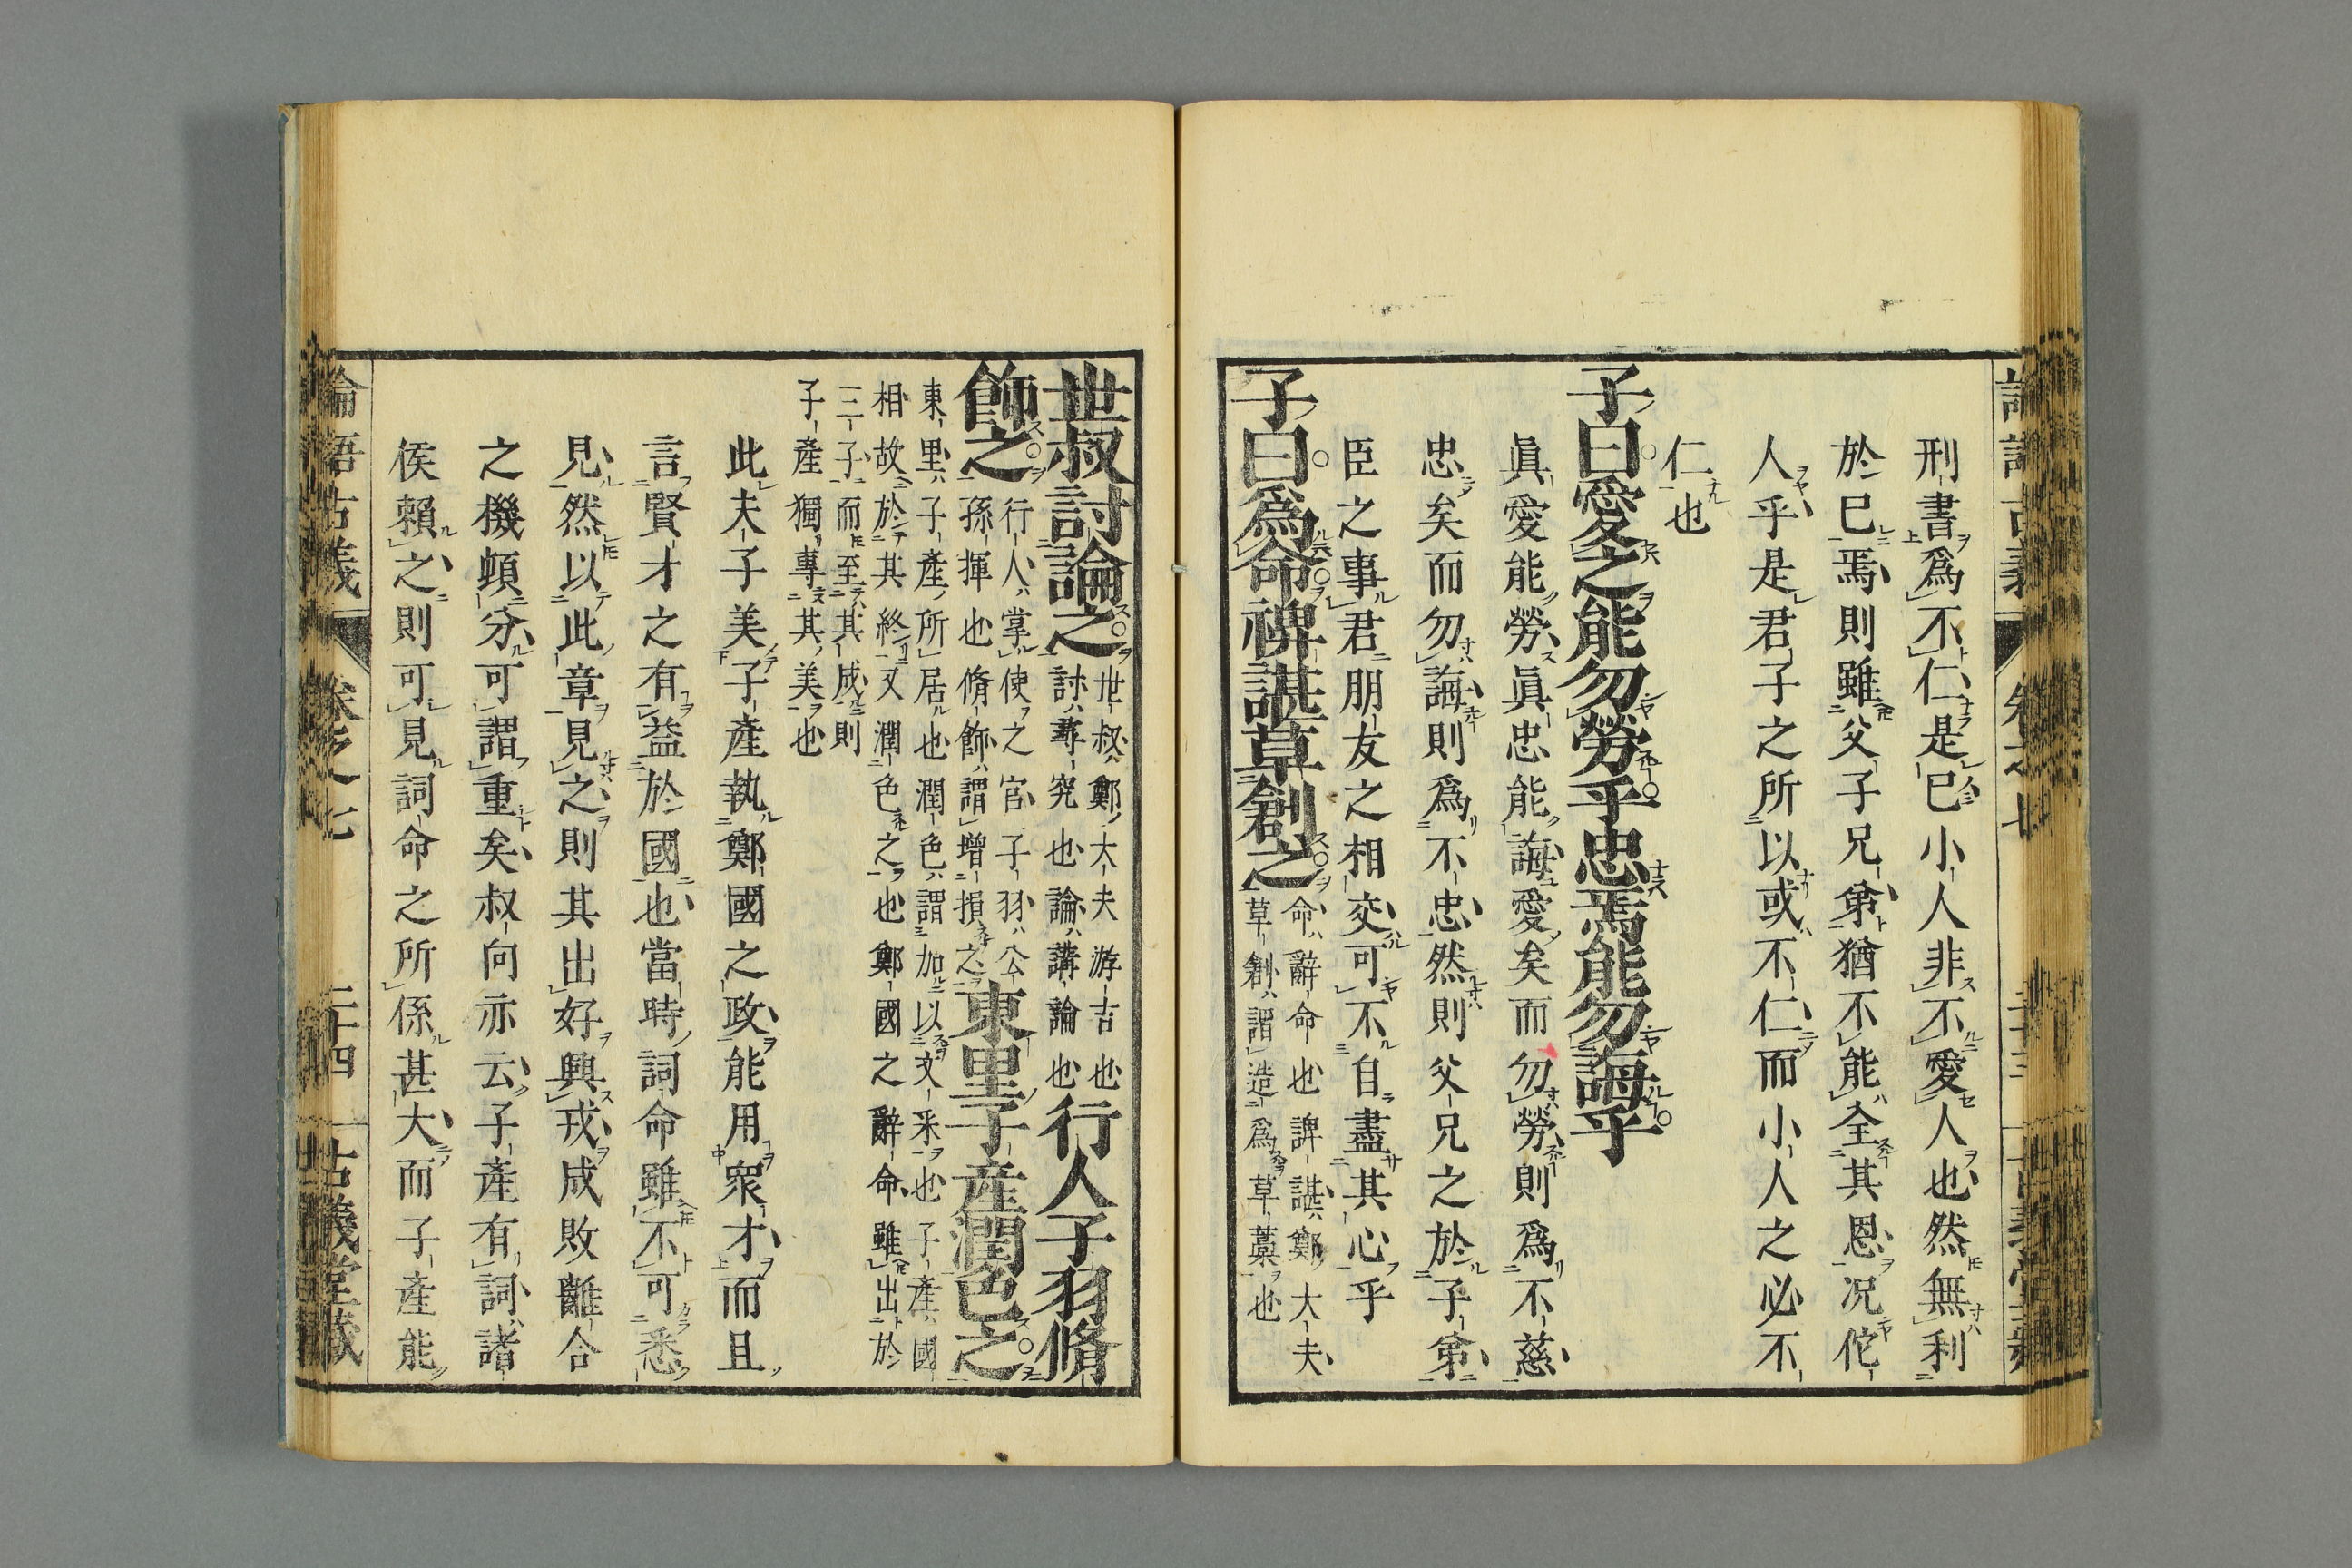 刑書爲不仁是已小人非不愛人也然無利
於已焉則雖父子兄弟猶不能全其恩况佗
人乎是君子之所以或不仁而小人之必不
仁也
子曰愛之能勿勞乎忠焉能勿誨乎
眞愛能勞眞忠能誨愛矣而勿勞則爲不慈
忠矣而勿誨則爲不忠然則父兄之於子弟
臣之事君朋友之相交可不自盡其心乎
子曰爲命裨諶草創之
命辭命也裨諶鄭大夫
草創謂造爲草藁也
世叔討論之
世叔鄭大夫游吉也
討尋究也論講論也
行人子羽脩
飾之
行人掌使之官子羽公
孫揮也脩飾謂增損之
東里子產潤色之
東里子產所居也潤色謂加以文采也子產國
相故於其終又潤色之也鄭國之辭命雖出於
三子而至其成則
子產獨專其美也
此夫子美子產執鄭國之政能用衆才而且
言賢才之有益於國也當時詞命雖不可悉
見然以此章見之則其出好興戎成敗離合
之機頓分可謂重矣叔向亦云子產有詞諸
侯賴之則可見詞命之所係甚大而子產能
論語古義
卷之七
二十四
古義堂藏